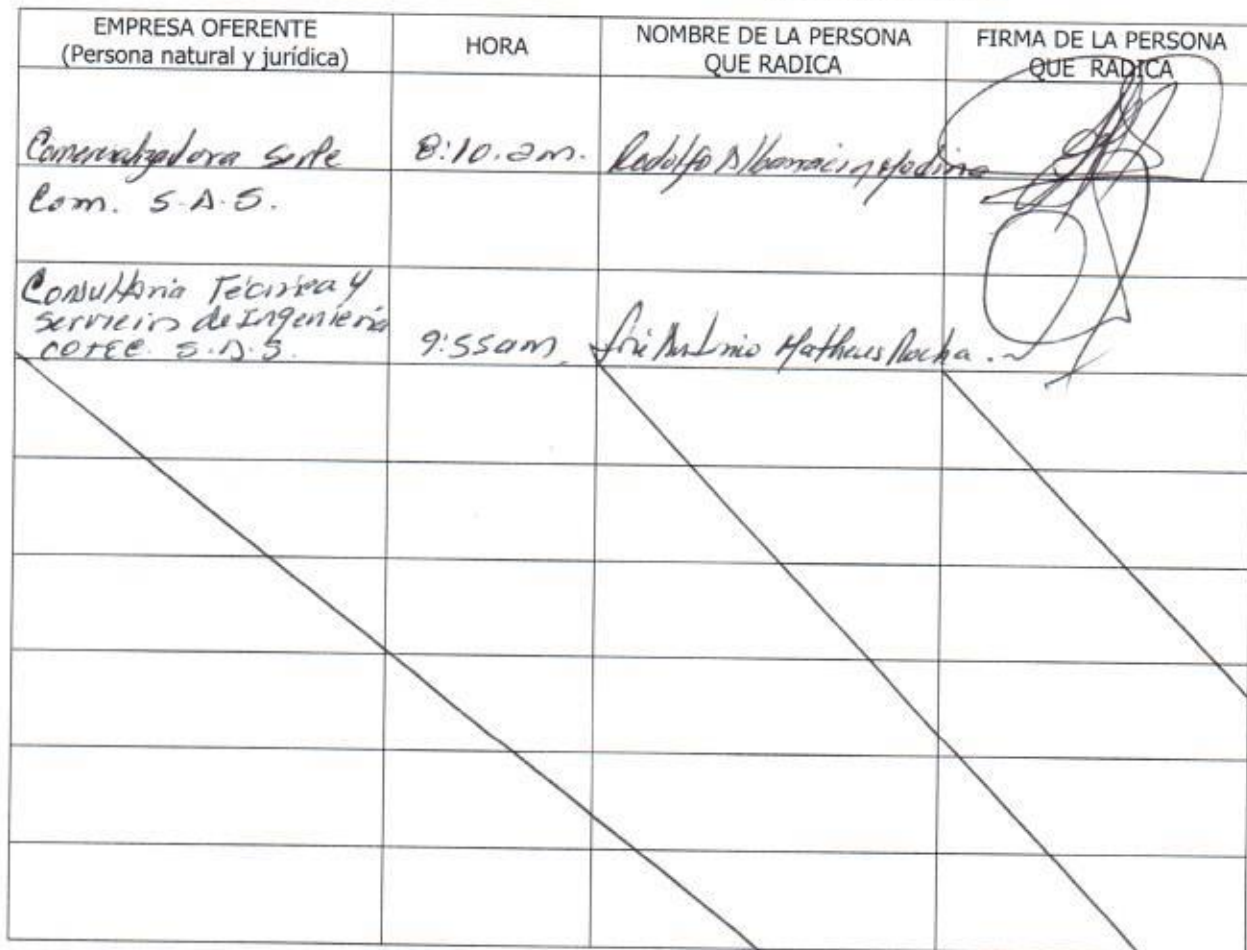 EMPRESA OFERENTE
(Persona natural y jurídica)
HORA
NOMBRE DE LA PERSONA
QUE RADICA
FIRMA DE LA PERSONA
QUE RADICA
Comercializadora
8:10. am.
Rodolfo Albarracin Medina
Com. S.A.S.
Consultoria Técnica y
servicios de Ingenieria
COTEC. S.A.S.
9:55am
José Antonio Matheus Rocha.